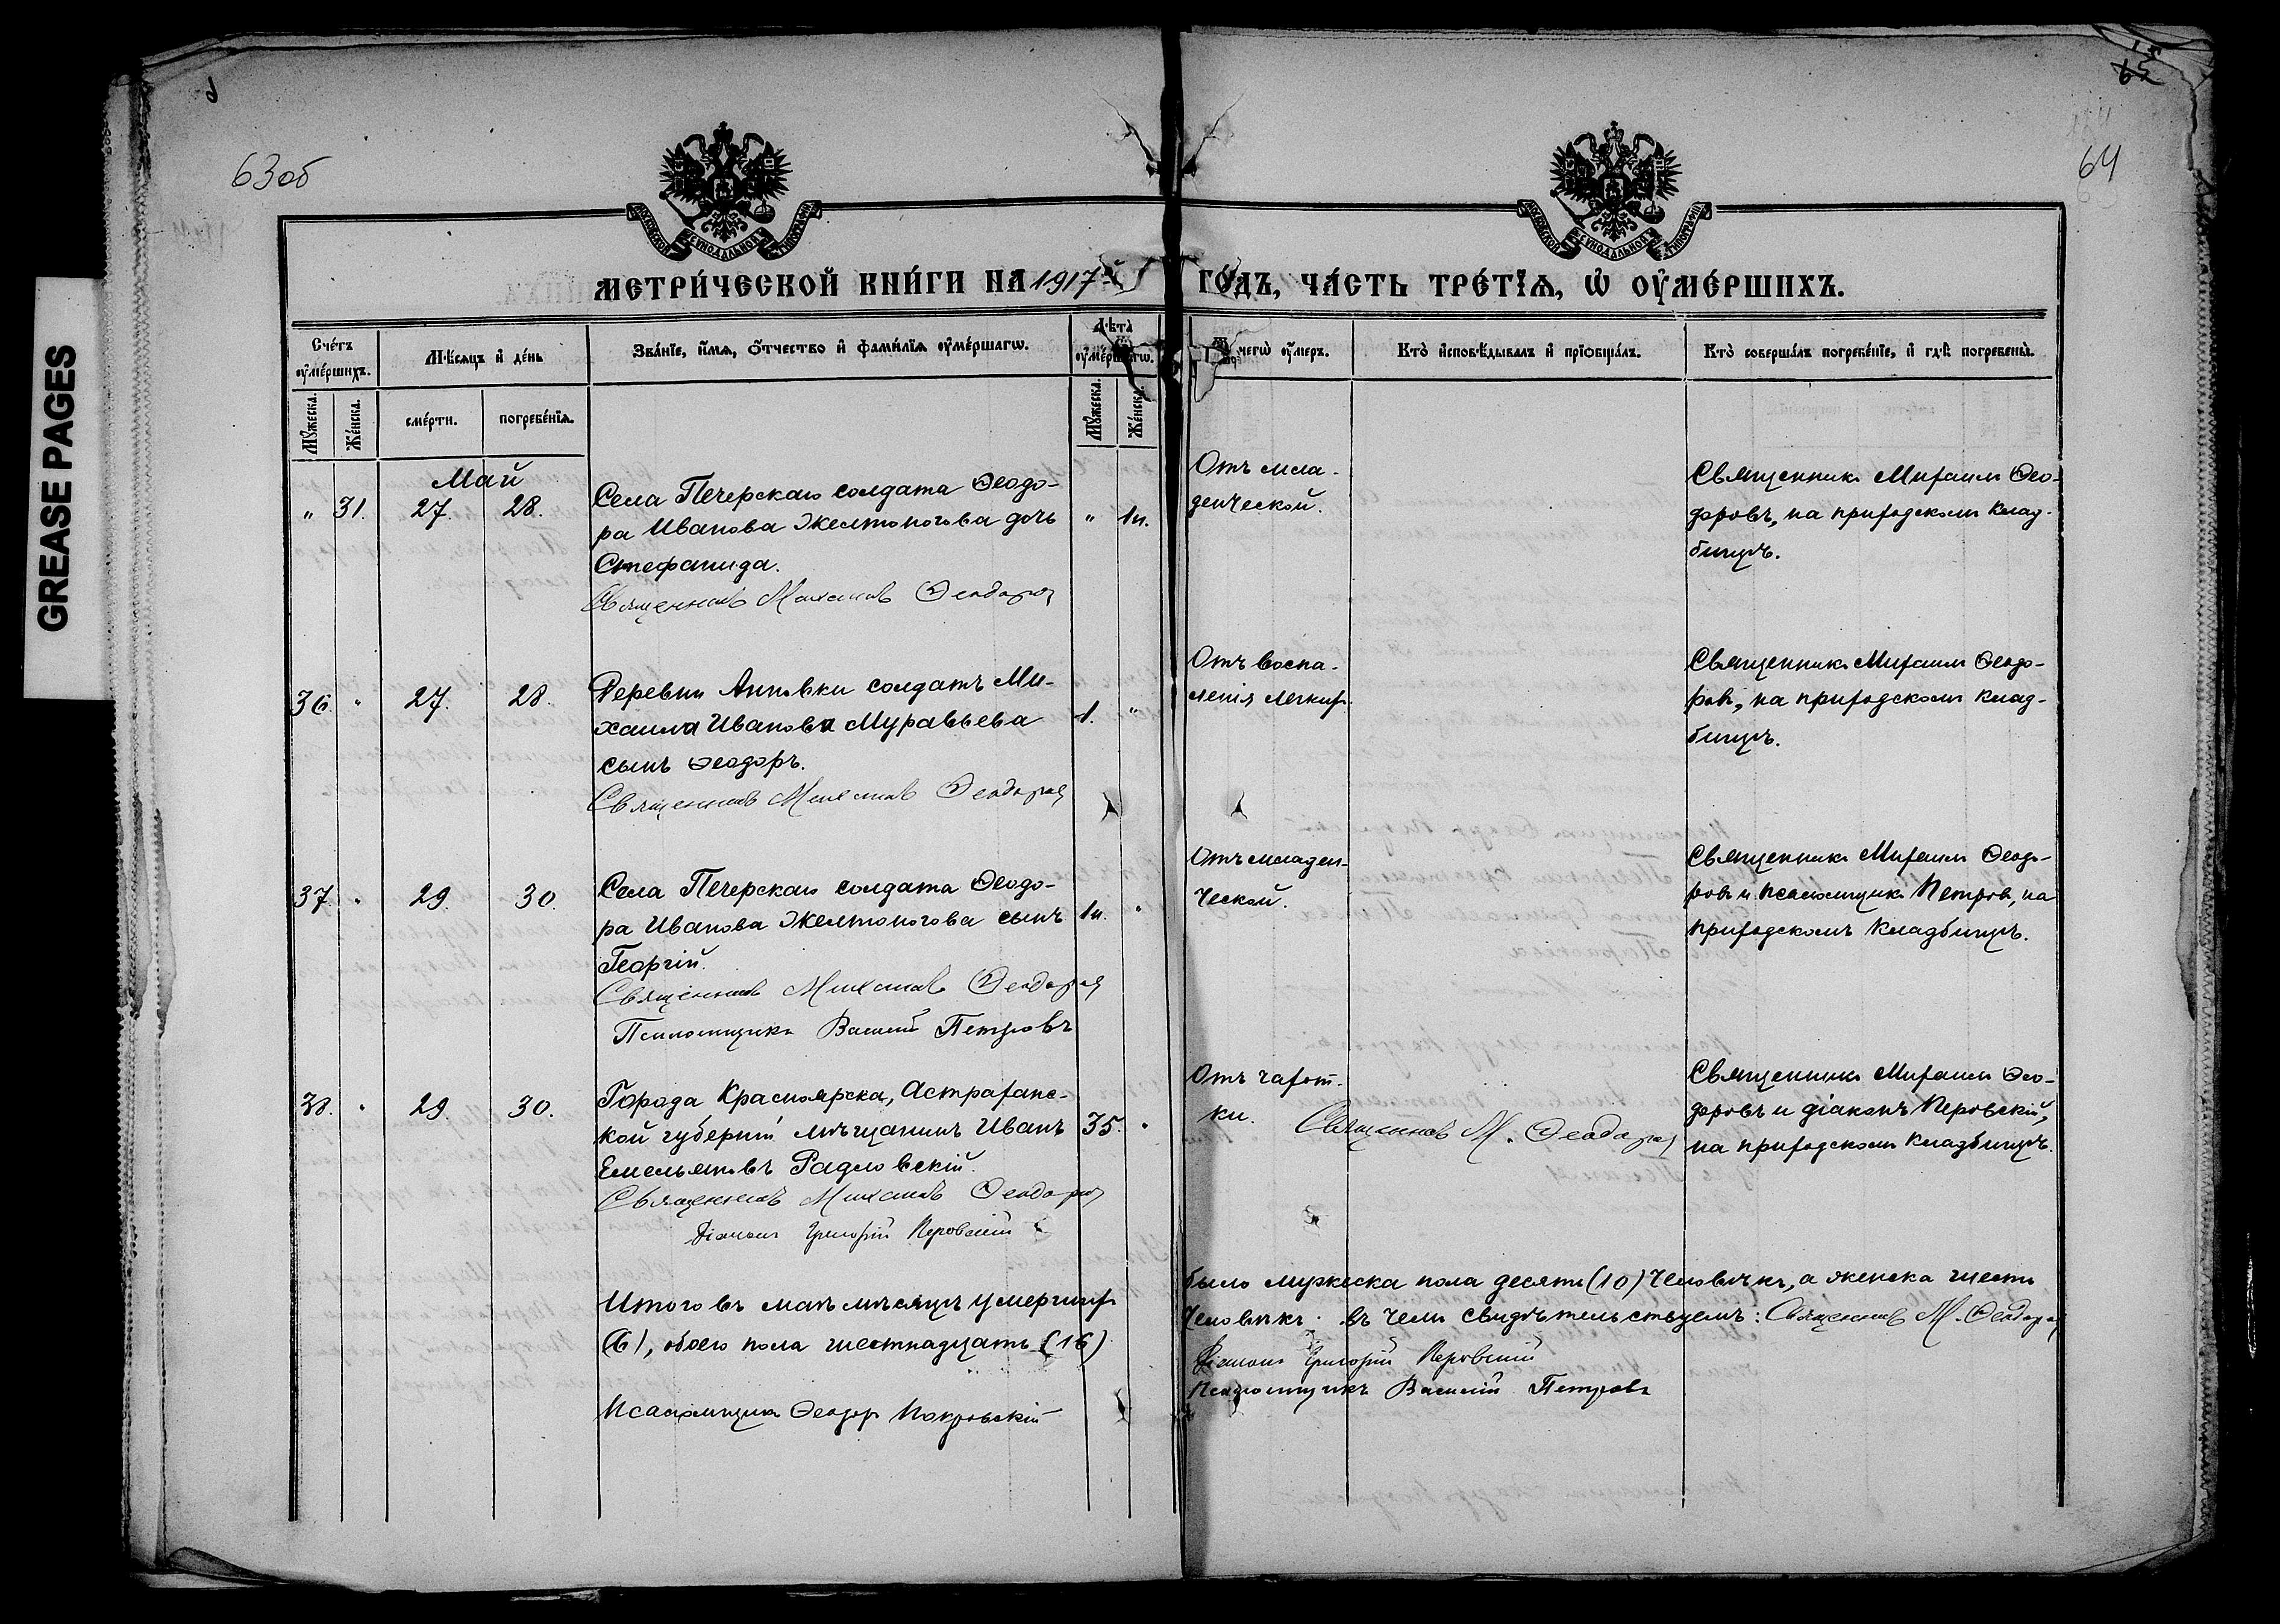 GREASE PAGES
63об
64
65
МОСКОВСКОЙ СѴНОДАЛЬНОЙ ТИПОГРАФІИ
МОСКОВСКОЙ СѴНОДАЛЬНОЙ ТИПОГРАФІИ
МЕТРИ́ЧЕСКОЙ КНИ́ГИ НА 1917-й ГО́ДЪ, ЧА́СТЬ ТРЕ́ТЇѦ, Ѡ҆ ОУ҆МЕ́РШИХЪ.
Сче́тъ оу҆ме́ршихъ.
Мѣ́сѧцъ и҆ де́нь
Зва́нїе, и҆́мѧ, ѻ҆́тчество и҆ фами́лїѧ оу҆ме́ршагѡ.
Лѣ́та оу҆ме́ршагѡ.
чегѡ̀ оу҆́меръ.
Кто̀ и҆сповѣ́дывалъ и҆ прїѡбща́лъ.
Кто̀ соверша́лъ погребе́нїе, и҆ гдѣ̀ погребены̀.
Мꙋ́жеска.
Же́нска.
сме́рти.
погребе́нїѧ.
Мꙋ́жеска.
Же́нска.
Май
" 31. 27. 28.
Села Печерскаго солдата Ѳеодо-
ра Иванова Желтоногова дочь
Стефанида.
Священникъ Михаилъ Ѳеодоровъ
" 1н.
Отъ мла-
денческой.
Священникъ Михаилъ Ѳео-
доровъ, на приходскомъ клад-
бищѣ.
36. " 27. 28.
Деревни Анновки солдатъ Ми-
хаила Иванова Муравьева
сынъ Ѳеодоръ.
Священникъ Михаилъ Ѳеодоровъ
1. "
Отъ воспа-
ленія легкихъ
Священникъ Михаилъ Ѳеодо-
ровъ, на приходскомъ клад-
бищѣ.
37. " 29. 30.
Села Печерскаго солдата Ѳеодо-
ра Иванова Желтоногова сынъ
Георгій.
Священникъ Михаилъ Ѳеодоровъ
Псаломщикъ Василій Петровъ
1н. "
Отъ младен-
ческой.
Священникъ Михаилъ Ѳеодо-
ровъ и псаломщикъ Петровъ, на
приходскомъ кладбищѣ.
38. " 29. 30.
Города Красноярска, Астрахан-
кой губерніи мѣщанинъ Иванъ
Емельяновъ Радловскій.
Священникъ Михаилъ Ѳеодоровъ
Діаконъ Григорій Перовскій
35. "
Отъ чахот-
ки.
Священникъ М. Ѳеодоровъ
Священникъ Михаилъ Ѳео-
доровъ и діаконъ Перовскій,
на приходскомъ кладбищѣ.
Итого въ маѣ мѣсяцѣ умершихъ
было мужеска пола десять (10) человѣкъ, а женска шесть
(6), обоего пола шестнадцать (16)
человѣкъ. въ чемъ свидѣтельствуемъ: Священникъ М. Ѳеодоровъ
Діаконъ Григорій Перовскій
Псаломщикъ Василій Петровъ
Псаломщикъ Ѳеодоръ Покровскій